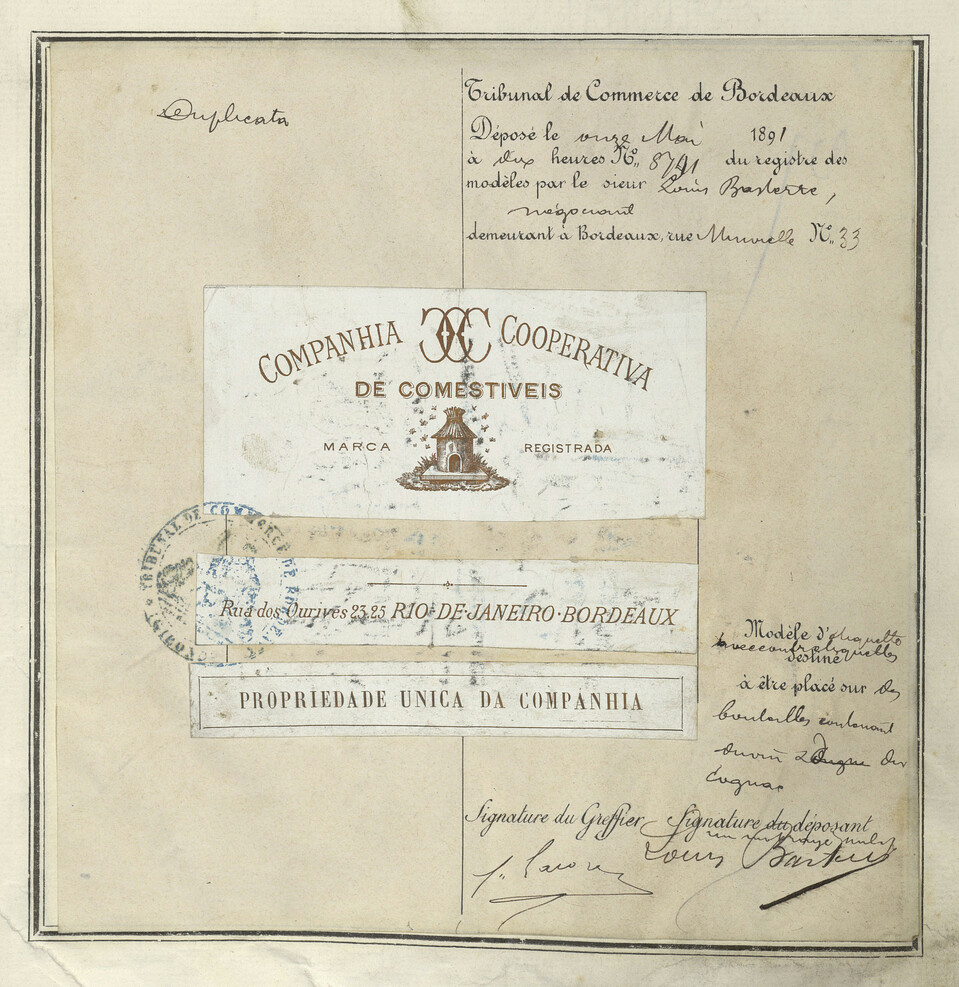 Duplicata
Tribunal de Commerce de Bordeaux
Déposé le onze Mai 1891
à deux heures N° 8791 du registre des
modèles par le sieur Louis Basterre,
négociant
demeurant à Bordeaux, rue N° 33
COMPANHIA CC COOPERATIVA
DE COMESTIVEIS
MARCA REGISTRADA
TRIBUNAL DE COMMERCE DE BORDEAUX
Rua dos Ourives 23, 25 RIO-DE-JANEIRO·BORDEAUX
PROPRIEDADE UNICA DA COMPANHIA
Modèle d'étiquette
avec contre étiquettes
destiné
à être placé sur des
bouteilles contenant
du vin du
Cognac
Signature du Greffier Signature du déposant
un mot rayé nul
Louis